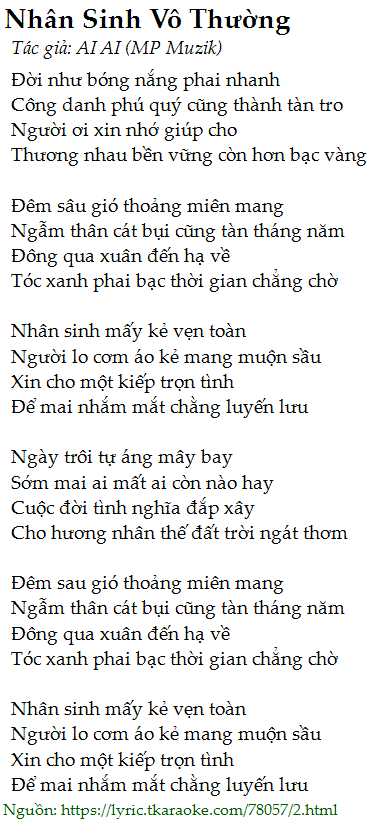 Nhân Sinh Vô Thường
Tác giả: AI AI (MP Muzik)
Đời như bóng nắng phai nhanh
Công danh phú quý cũng thành tàn tro
Người ơi xin nhớ giúp cho
Thương nhau bền vững còn hơn bạc vàng
Đêm sâu gió thoảng miên mang
Ngẫm thân cát bụi cũng tàn tháng năm
Đông qua xuân đến hạ về
Tóc xanh phai bạc thời gian chẳng chờ
Nhân sinh mấy kẻ vẹn toàn
Người lo cơm áo kẻ mang muộn sầu
Xin cho một kiếp trọn tình
Để mai nhắm mắt chằng luyến lưu
Ngày trôi tự áng mây bay
Sớm mai ai mất ai còn nào hay
Cuộc đời tình nghĩa đắp xây
Cho hương nhân thế đất trời ngát thơm
Đêm sau gió thoảng miên mang
Ngẫm thân cát bụi cũng tàn tháng năm
Đông qua xuân đến hạ về
Tóc xanh phai bạc thời gian chẳng chờ
Nhân sinh mấy kẻ vẹn toàn
Người lo cơm áo kẻ mang muộn sầu
Xin cho một kiếp trọn tình
Để mai nhắm mắt chằng luyến lưu
Nguồn: https://lyric.tkaraoke.com/78057/2.html